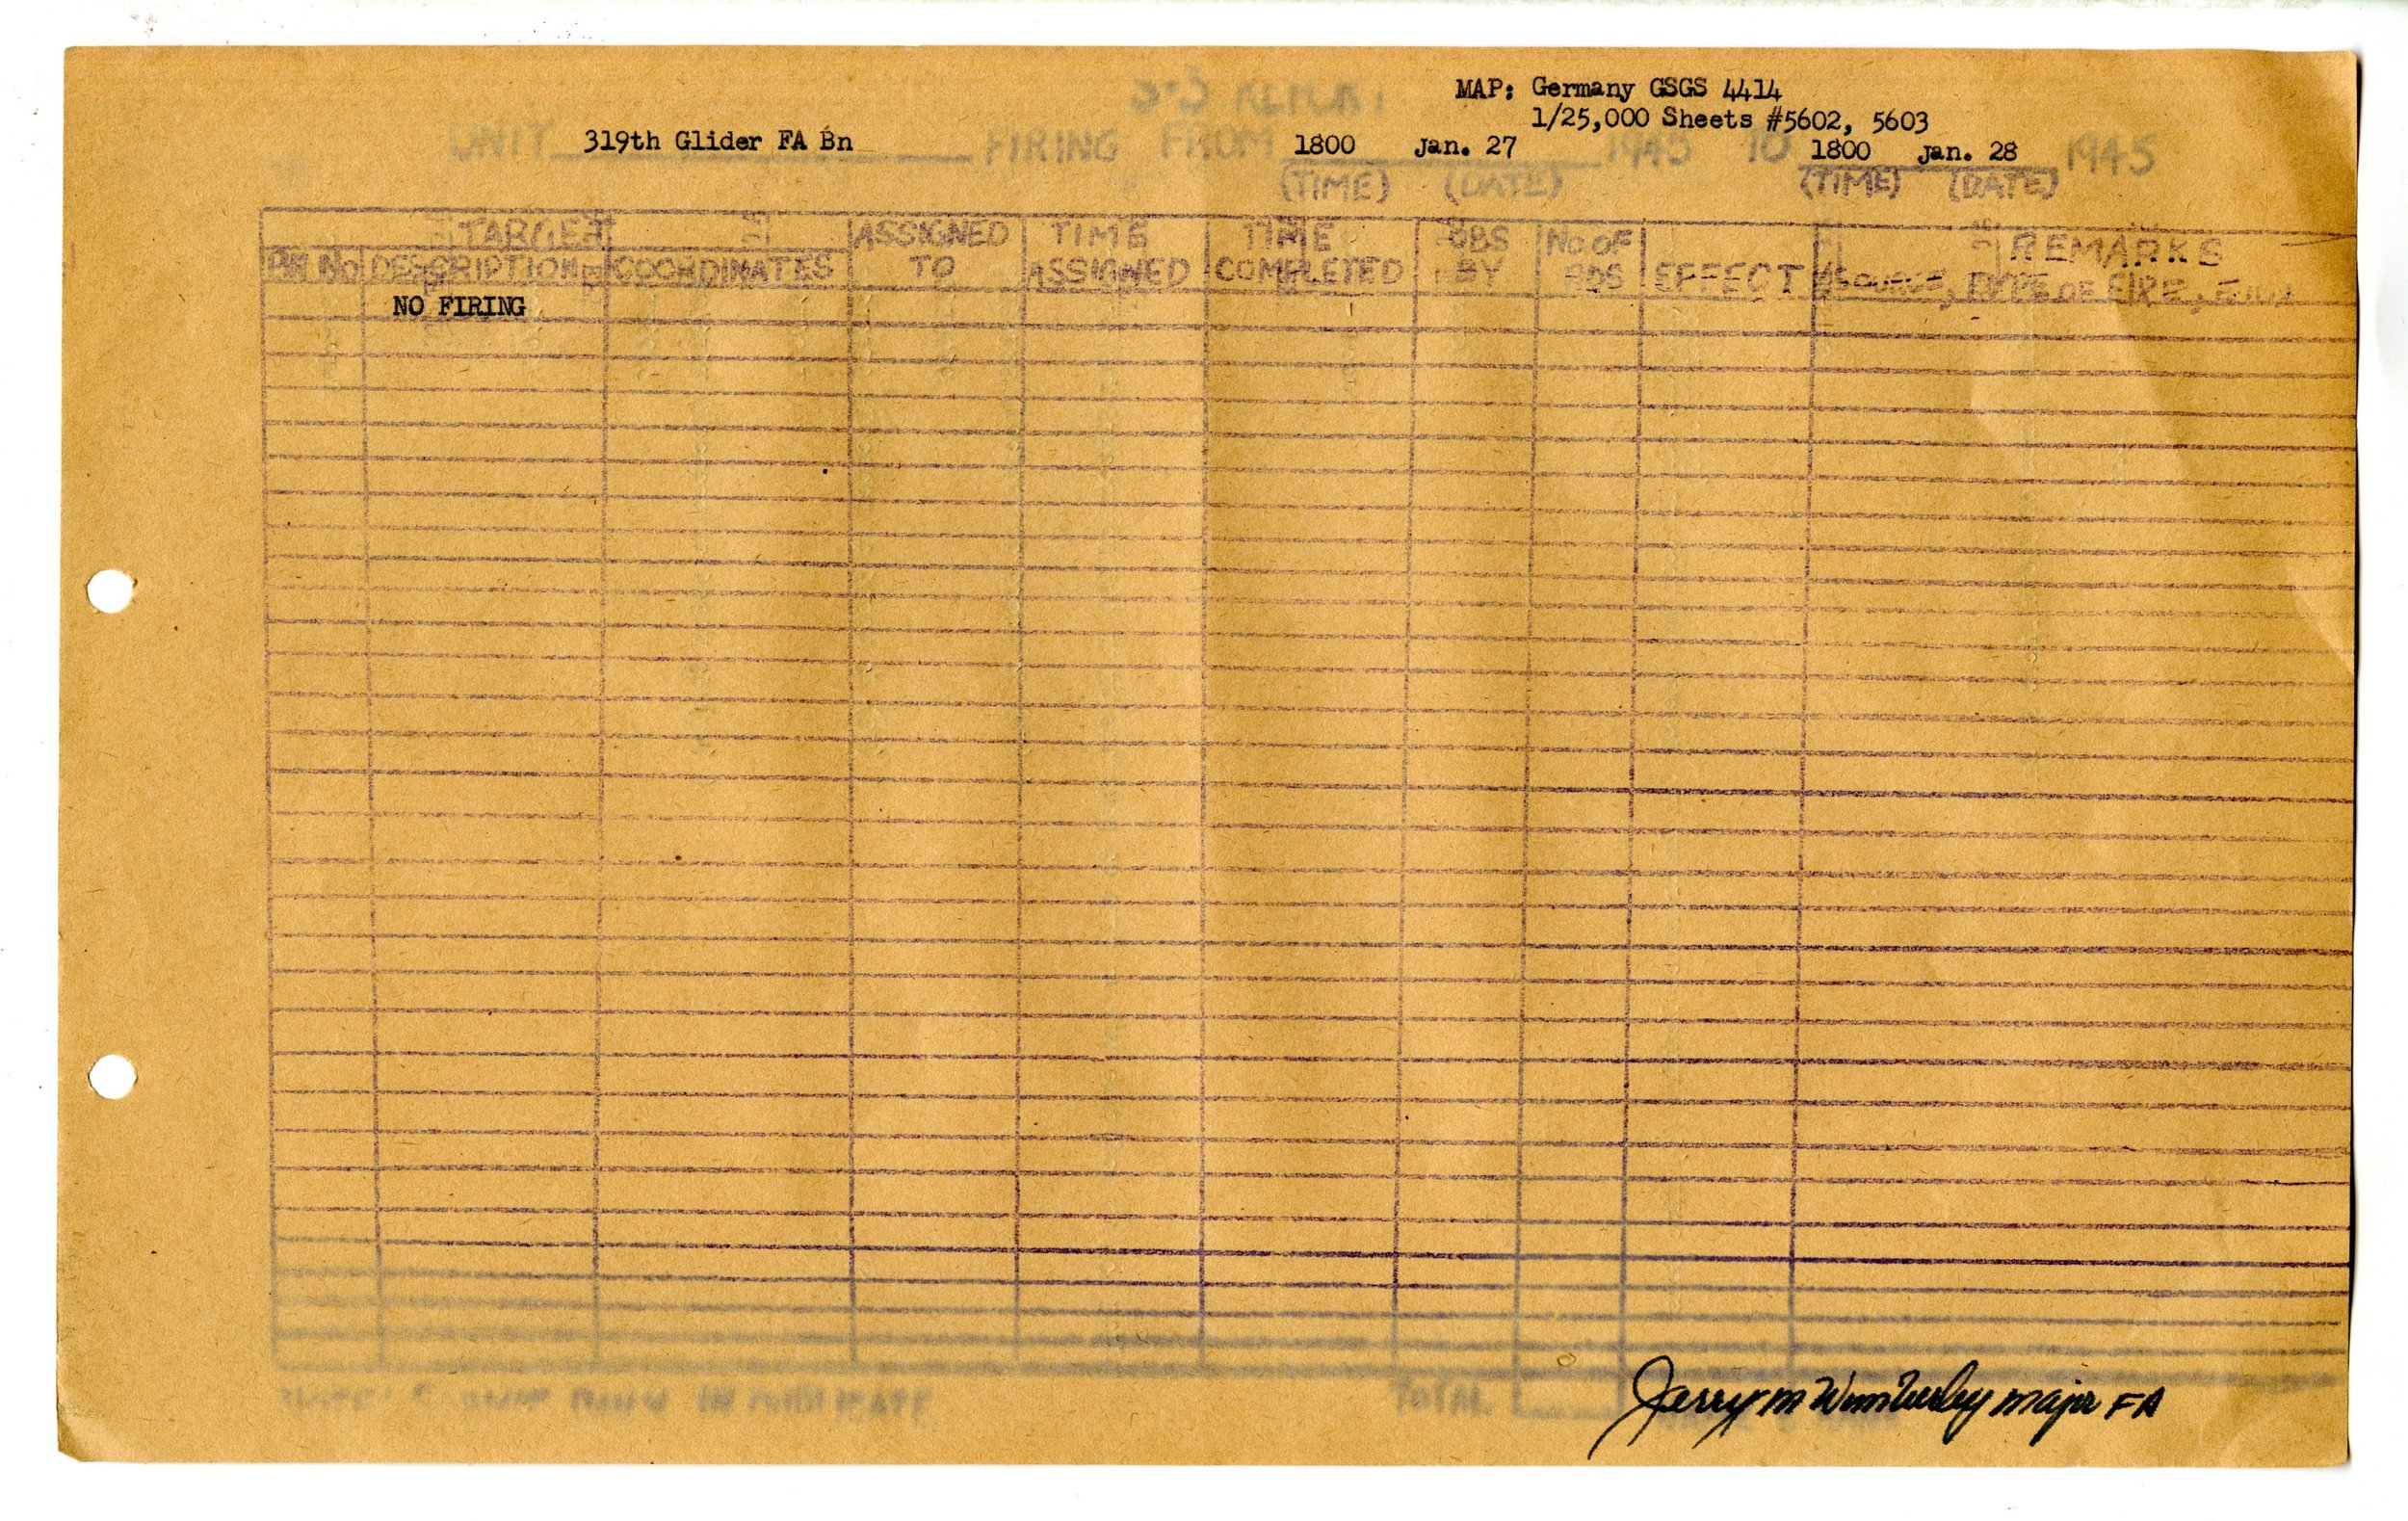 S-3 REPORT
MAP: Germany GSGS 4414
1/25,000 Sheets #5602, 5603
UNIT 319th Glider FA Bn FIRING FROM 1800 Jan. 27 1945 TO 1800 Jan. 28 1945
(TIME) (DATE) (TIME) (DATE)
TARGET ASSIGNED TIME TIME OBS No OF REMARKS
DESCRIPTION COORDINATES TO ASSIGNED COMPLETED BY RDS EFFECT (SOURCE, TYPE OF FIRE,
NO FIRING
IN DUPLICATE TOTAL
Jerry M Wimberley Major FA